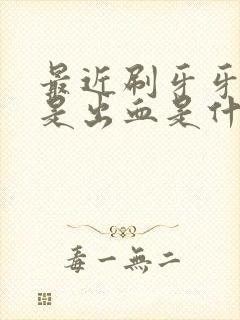 最近刷牙牙
是出血是什
毒一無二